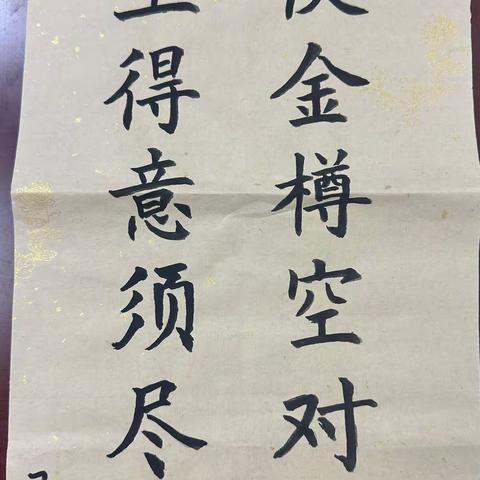 金樽空对
得意须尽